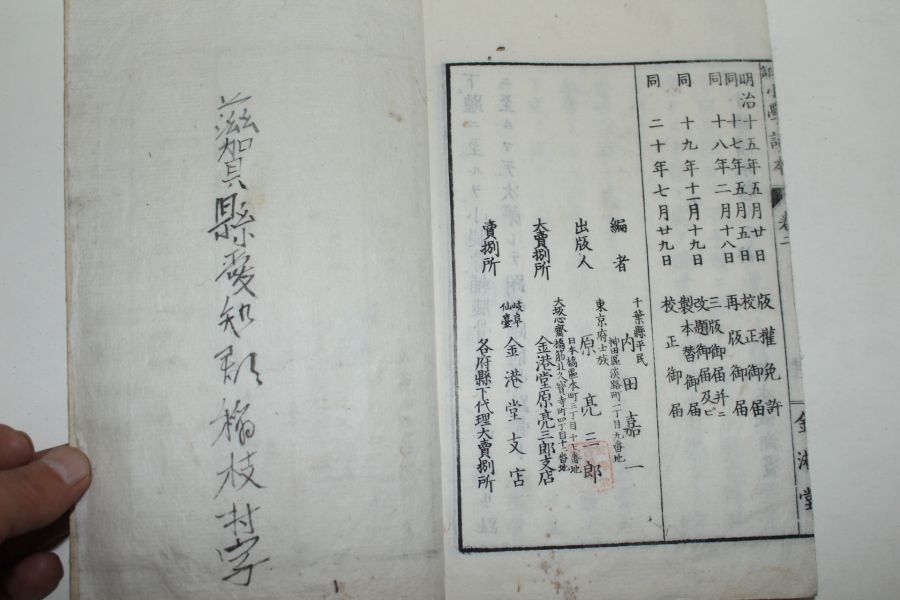 小學讀本
卷二
金港堂
明治十五年五月廿日 版權免許
同十七年五月五日 校正御届
同十八年二月十八日 再版御届
同十九年十一月十九日 三版御届并ニ改題御届及ビ製本替御届
同二十年七月廿九日 校正御届
編者 千葉縣平民 内田嘉一
神田區淡路町二丁目九番地
出版人 東京府士族 原亮三郎
日本橋區本町三丁目十七番地
大賣捌所 金港堂原亮三郎支店
大坂心齋橋筋北久寳寺町四丁目十一番地
岐阜 仙臺 金港堂支店
賣捌所 各府縣下代理大賣捌所
滋賀縣愛知郡稲枝村字